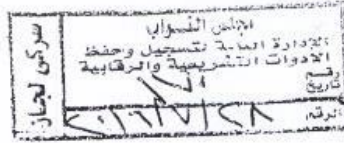 مجلس النواب
الإدارة العامة لتسجيل وحفظ
الادوات التشريعية والرقابية
رقم
تاريخ
الرقم ٢٠١٦/٧/٢٨
سركى لجان